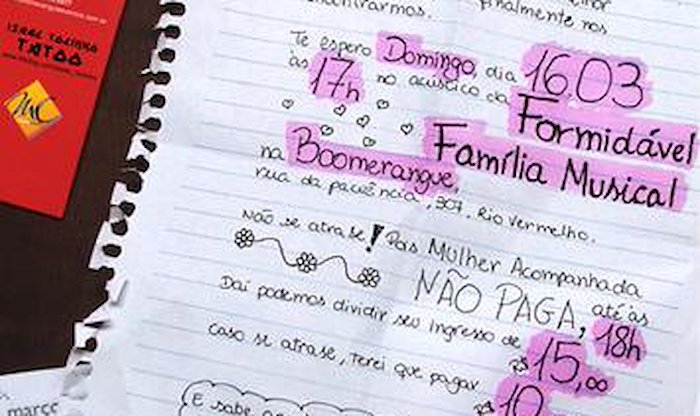 ontrarmos.
finalmente nos
Te espero Domingo, dia 16.03
às 17h no acústico da Formidável
Família Musical
na Boomerangue,
rua da paciência, 307. Rio Vermelho.
Não se atrase! Pois Mulher Acompanhada
NÃO PAGA, até às 18h
Daí podemos dividir seu ingresso de R$ 15,00
caso se atrase, terei que pagar R$ 10
E sabe
TATOO
março